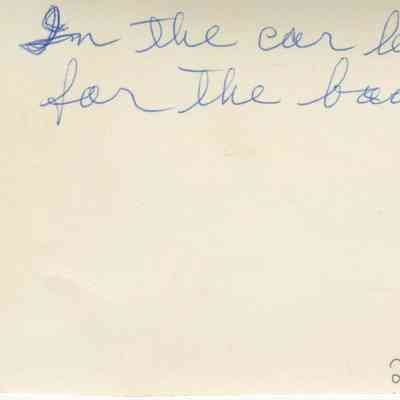 In the car
for the